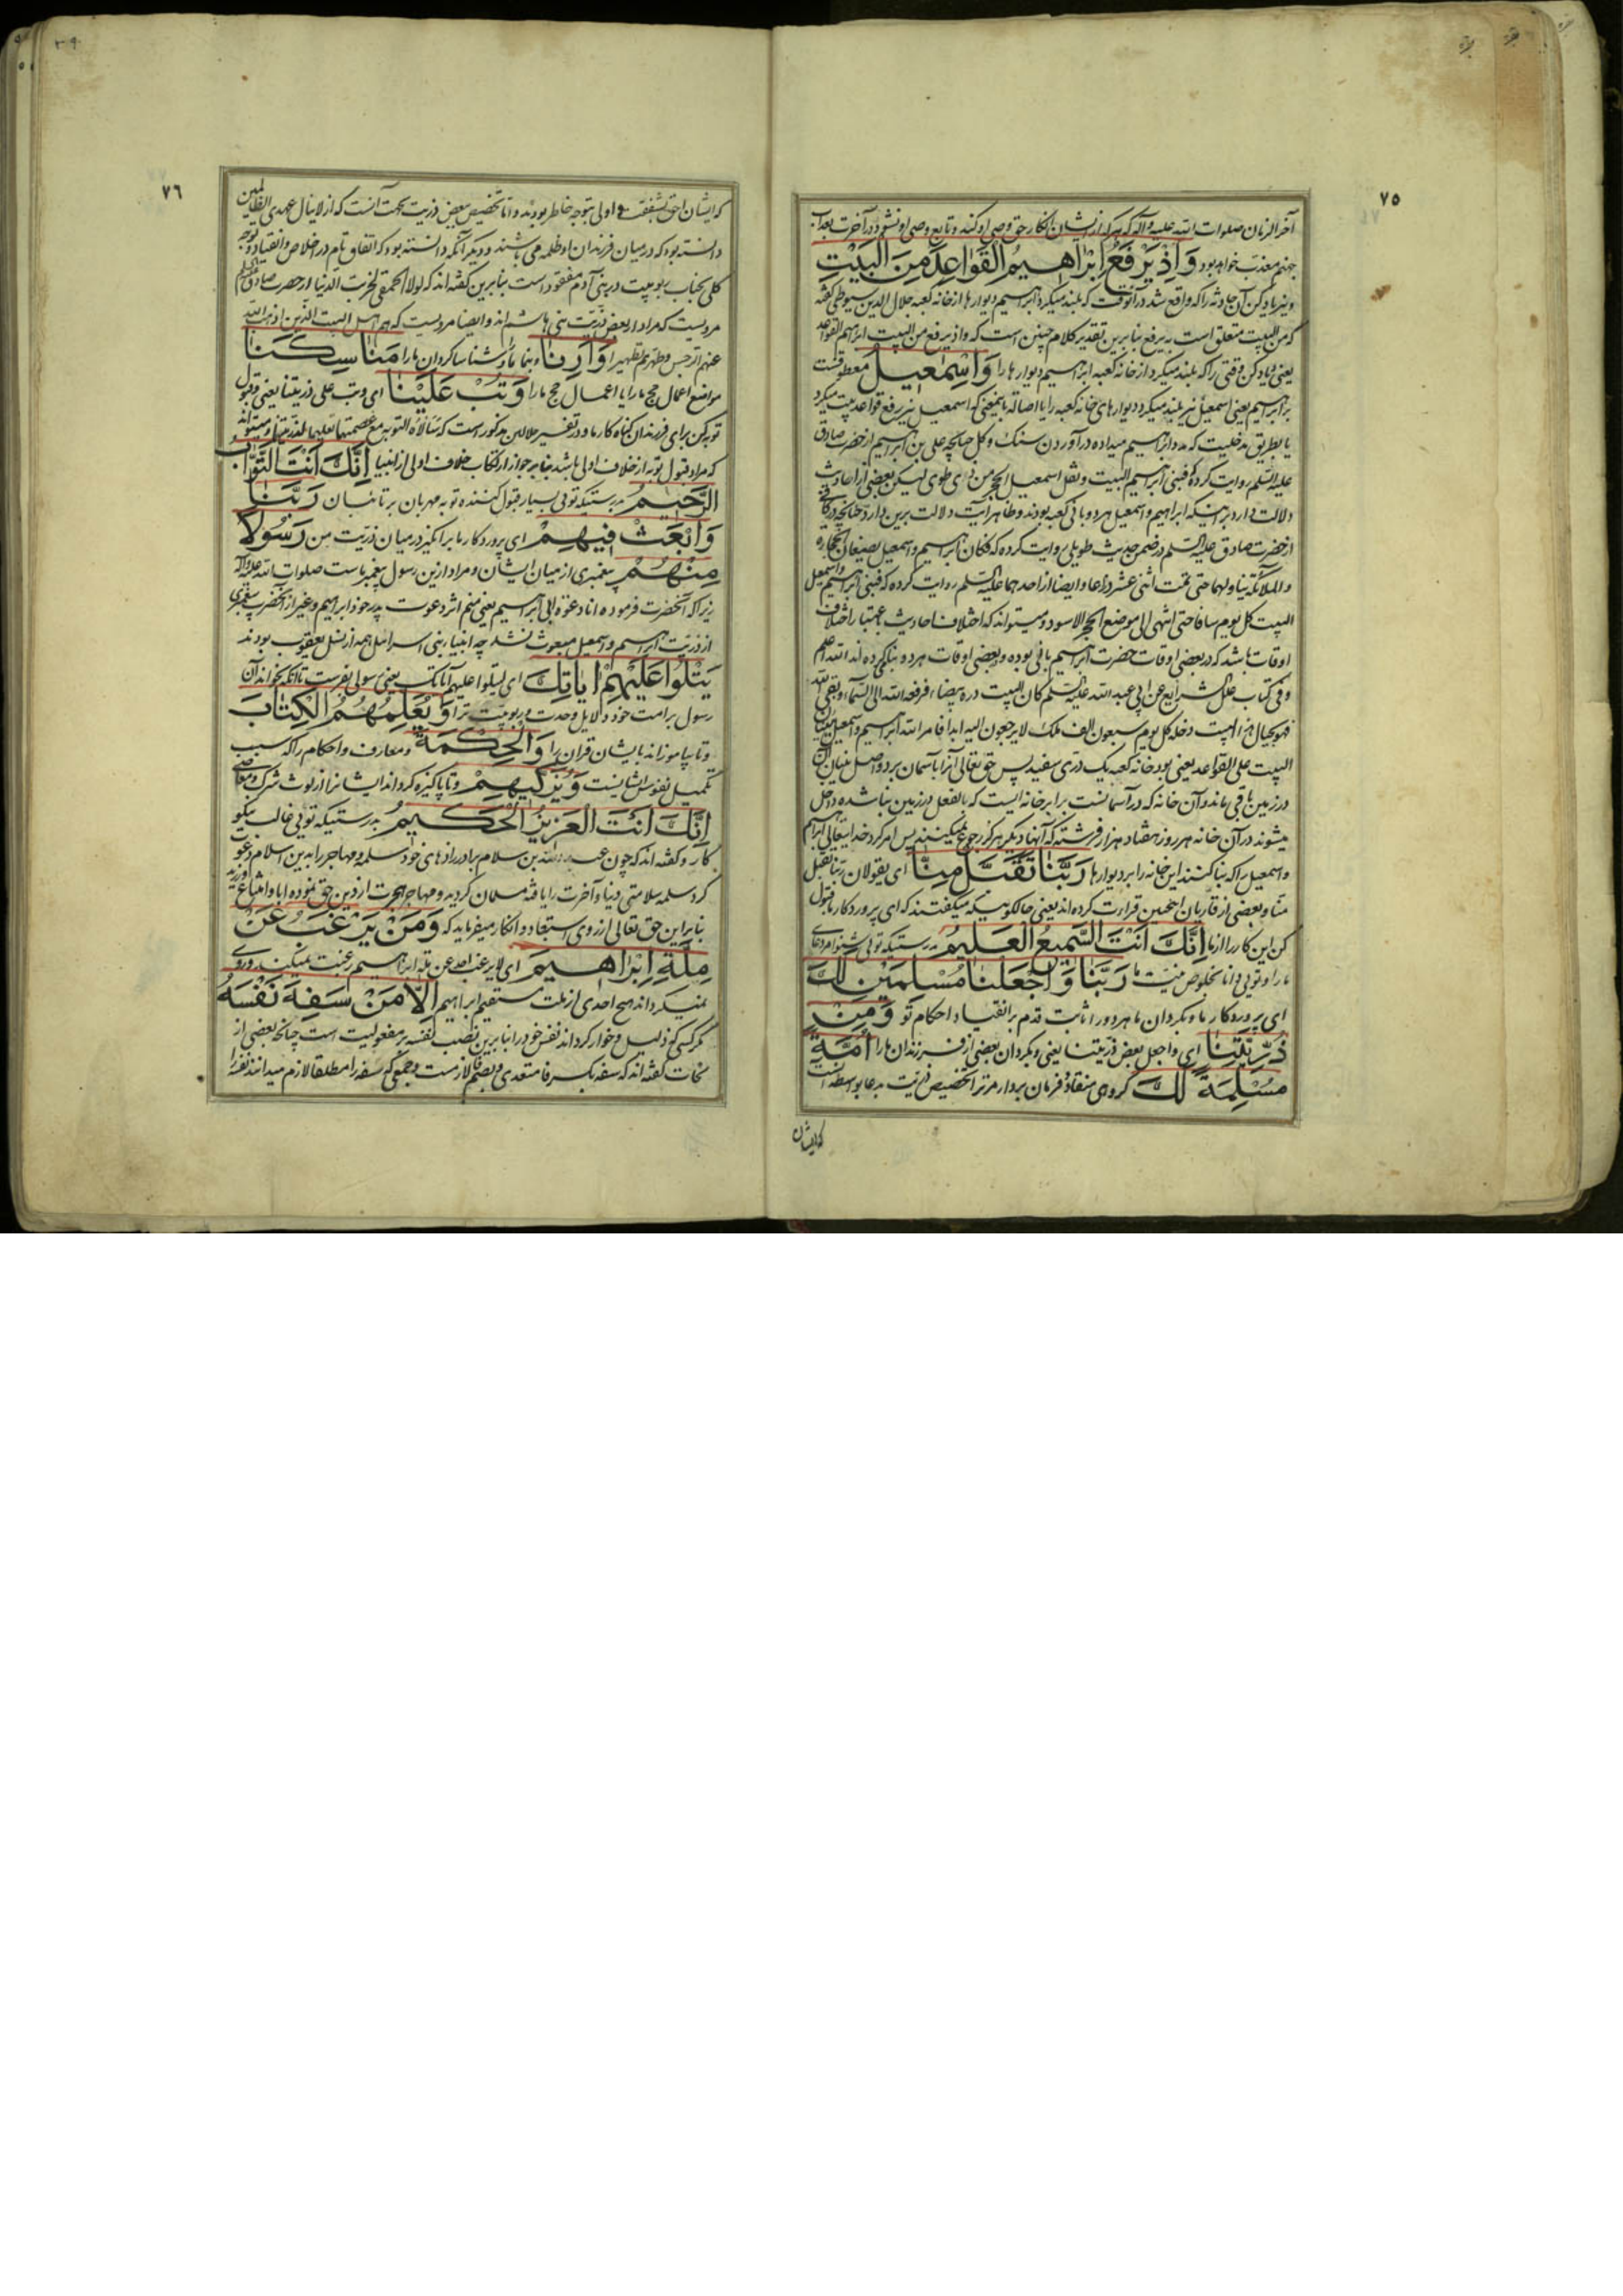 ٧٥
آخر الزمان صلوات الله علیه وآله که هرکه از ایشان انکار حق وصی او کند و تابع وصی او نشود در آخرت بعذاب
جهنم معذب خواهد بود وَاِذْ یَرْفَعُ اِبْرٰاهیمُ الْقَوٰاعِدَ مِنَ الْبَیْتِ
و نیز یاد کن آن حادثه را که واقع شد در آنوقت که بلند میکرد ابراهیم دیوارها از خانه کعبه جلال الدین سیوطی گفته
که من البیت متعلق است به یرفع بنابرین تقدیر کلام چنین است که واذ یرفع من البیت ابراهیم القواعد
یعنی و یاد کن وقتی را که بلند میکرد از خانه کعبه ابراهیم دیوارها را وَاِسْمٰعیلُ معطوفست
بر ابراهیم یعنی اسمعیل نیز بلند میکرد دیوارهای خانه کعبه را یا اصالة بایمعنی که اسمعیل نیز رفع قواعد بیت میکرد
یا بطریق مدخلیت که مدد ابراهیم میداده در آوردن سنگ و گل چنانچه علی بن ابراهیم از حضرت صادق
علیه السلم روایت کرده که فبنی ابراهیم البیت و نقل اسمعیل الحجر من ذی طوی لیکن بعضی از احادیث
دلالت دارد بر اینکه ابراهیم و اسمعیل هر دو بانی کعبه بودند و ظاهر آیت دلالت برین دارد چنانچه در کافی
از حضرت صادق علیه السلم در ضمن حدیث طویلی روایت کرده که فکان ابراهیم واسمعیل یضعان الحجاره
والملائکة تناولهما حتی تمت اثنی عشر ذراعا و ایضا از احدهما علیه السلم روایت کرده که فبنی ابراهیم واسمعیل
البیت کل یوم سافا حتی انتهی الی موضع الحجر الاسود و میتواند که اختلاف احادیث باعتبار اختلاف
اوقات باشد که در بعضی اوقات حضرت ابراهیم بانی بوده و بعضی اوقات هر دو بنا کرده اند الله اعلم
و فی کتاب علل الشرایع عن ابی عبد الله علیه السلم کان البیت درة بیضاء فرفعه الله الی السماء وبقی اسه
فهو بحیال هذا البیت دخله کل یوم سبعون الف ملک لا یرجعون الیه ابدا فامر الله ابراهیم واسمعیل یبنیان
البیت علی القواعد یعنی بود خانه کعبه یک دری سفید پس حق تعالی آنرا بآسمان برد و اصل بنیان آن
در زمین باقی ماند و آن خانه که در آسمانست برابر خانه ایست که بالفعل در زمین بنا شده داخل
میشوند در آن خانه هر روز هفتاد هزار فرشته که آنها دیگر هرگز رجوع نمیکنند پس امر کرد خدایتعالی ابراهیم
و اسمعیل را که بنا کنند این خانه را بر دیوارها رَبَّنٰا تَقَبَّلْ مِنّٰا ای یقولان ربنا تقبل
منا و بعضی از قاریان اینچنین قراءت کرده اند یعنی حالکونیکه میگفتند که ای پروردگار ما قبول
کن این کار را از ما اِنَّکَ اَنْتَ السَّمیعُ الْعَلیمُ بدرستیکه توئی شنوا مر دعای
ما را و توئی دانا بخلوص نیت ما رَبَّنٰا وَاجْعَلْنٰا مُسْلِمَیْنِ لَکَ
ای پروردگار ما و بگردان ما هر دو را ثابت قدم بر انقیاد احکام تو وَمِنْ
ذُرِّیَّتِنٰا ای واجعل بعض ذریتنا یعنی و بگردان بعضی از فرزندان ما را اُمَّةً
مُسْلِمَةً لَکَ گروهی منقاد و فرمان بردار مر ترا تخصیص ذریت بدعا بواسطه آنست
که ایشان
٧٦
که ایشان احق بشفقت و اولی بتوجه خاطر بودند و اما تخصیص بعض ذریت بجهت آنست که از لا ینال عهدی الظالمین
دانسته بود که در میان فرزندان او ظلمه می باشند و دیگر آنکه دانسته بود که اتفاق تام در اخلاص و انقیاد و توجه
کلی بجناب ربوبیت در بنی آدم مفقود است بنابرین گفته اند که لولا الحمقی لخربت الدنیا از حضرت صادق علیه السلم
مرویست که مراد از بعض ذریت بنی هاشم اند و ایضا مرویست که هم اهل البیت الذین اذهب الله
عنهم الرجس وطهرهم تطهیرا وَاَرِنٰا و بنما ما و شناسا گردان ما را مَنٰاسِکَنٰا
مواضع اعمال حج ما را یا اعمال حج ما را وَتُبْ عَلَیْنٰا ای وتب علی ذریتنا یعنی و قبول
توبه کن برای فرزندان گناه کار ما و در تفسیر جلالین مذکور است که سألاه التوبة مع عصمتهما تعلیما لذریتهما و میتواند
که مراد قبول توبه از خلاف اولی باشد بنابر جواز ارتکاب خلاف اولی از انبیا اِنَّکَ اَنْتَ التَّوّٰابُ
الرَّحیمُ بدرستیکه توئی بسیار قبول کننده توبه مهربان بر تائبان رَبَّنٰا
وَابْعَثْ فیهِمْ ای پروردگار ما برانگیز در میان ذریت من رَسُولاً
مِنْهُمْ پیغمبری از میان ایشان و مراد ازین رسول پیغمبر ماست صلوات الله علیه وآله
زیرا که آنحضرت فرموده انا دعوة ابی ابراهیم یعنی منم اثر دعوت پدر خود ابراهیم و غیر از آنحضرت پیغمبری
از ذریت ابراهیم و اسمعیل مبعوث نشد چه انبیاء بنی اسرائیل همه از نسل یعقوب بودند
یَتْلُوا عَلَیْهِمْ اٰیٰاتِکَ ای لیتلوا علیهم آیاتک یعنی رسولی بفرست تا آنکه بخواند آن
رسول بر امت خود دلایل وحدت و ربوبیت ترا وَیُعَلِّمُهُمُ الْکِتٰابَ
و تا بیاموزاند بایشان قرآن را وَالْحِکْمَةَ و معارف و احکام را که سبب
تکمیل نفوس ایشانست وَیُزَکّیهِمْ و تا پاکیزه گرداند ایشانرا از لوث شرک و معاصی
اِنَّکَ اَنْتَ الْعَزیزُ الْحَکیمُ بدرستیکه توئی غالب نیکو
کار و گفته اند که چون عبد الله بن سلام برادرزاد های خود سلمه و مهاجر را بدین اسلام دعوت
کرد سلمه سلامتی دنیا و آخرت را یافته مسلمان گردید و مهاجر هجرت از دین حق نموده ابا و امتناع ورزید
بنابراین حق تعالی از روی استبعاد و انکار میفرماید که وَمَنْ یَرْغَبُ عَنْ
مِلَّةِ اِبْرٰاهیمَ ای لا یرغب احد عن ملة ابراهیم رغبت نمیکند و روی
نمیگرداند هیچ احدی از ملت مستقیم ابراهیم اِلّٰا مَنْ سَفِهَ نَفْسَهُ
مگر کسی که ذلیل و خوار گرداند نفس خود را بنابرین نصب نفسه بر مفعولیت است چنانچه بعضی از
نحات گفته اند که سفه بکسر فا متعدی و بضم فا لازمست و جمعی که سفه را مطلقا لازم میدانند نفسه را